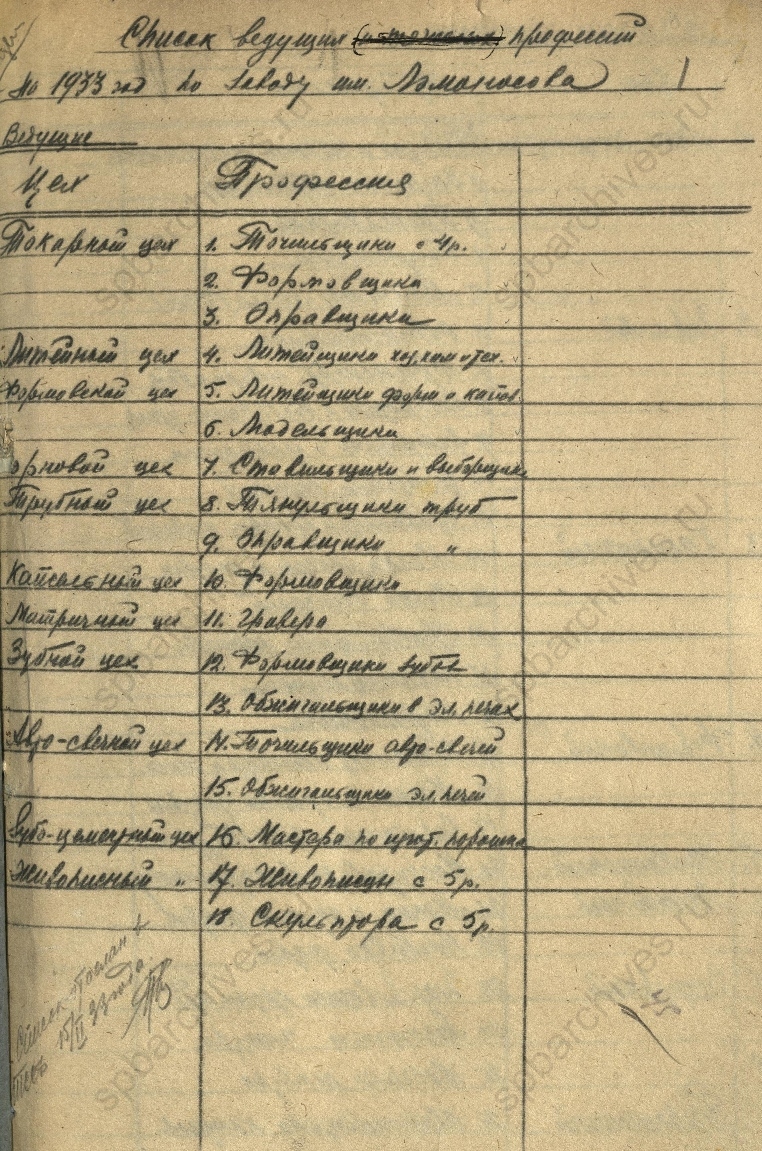 Список ведущих профессий
на 1933 год по Заводу им. Ломоносова
Ведущие
Цех Профессия
Токарный цех 1. Точильщики с 4р.
2. Формовщики
3. Оправщики
Литейный цех 4. Литейщики
Формовской цех 5. Литейщики форм и капов.
6. Модельщики
Горновой цех 7. Ставильщики и выборщики
Трубный цех 8. Тянульщики труб
9. Оправщики "
Капсельный цех 10. Формовщики
Матричный цех 11. Гравера
Зубной цех 12. Формовщики зубов
13. Обжигальщики в эл. печах
Авто-свечной цех 14. Точильщики авто-свечей
15. Обжигальщики эл. печей
Зубо-цементный цех 16. Мастера по порошка
Живописный " 17. Живописцы с 5р.
18. Скульптора с 5р.
Список послан
15/II 33 года
45
spbarchives.ru